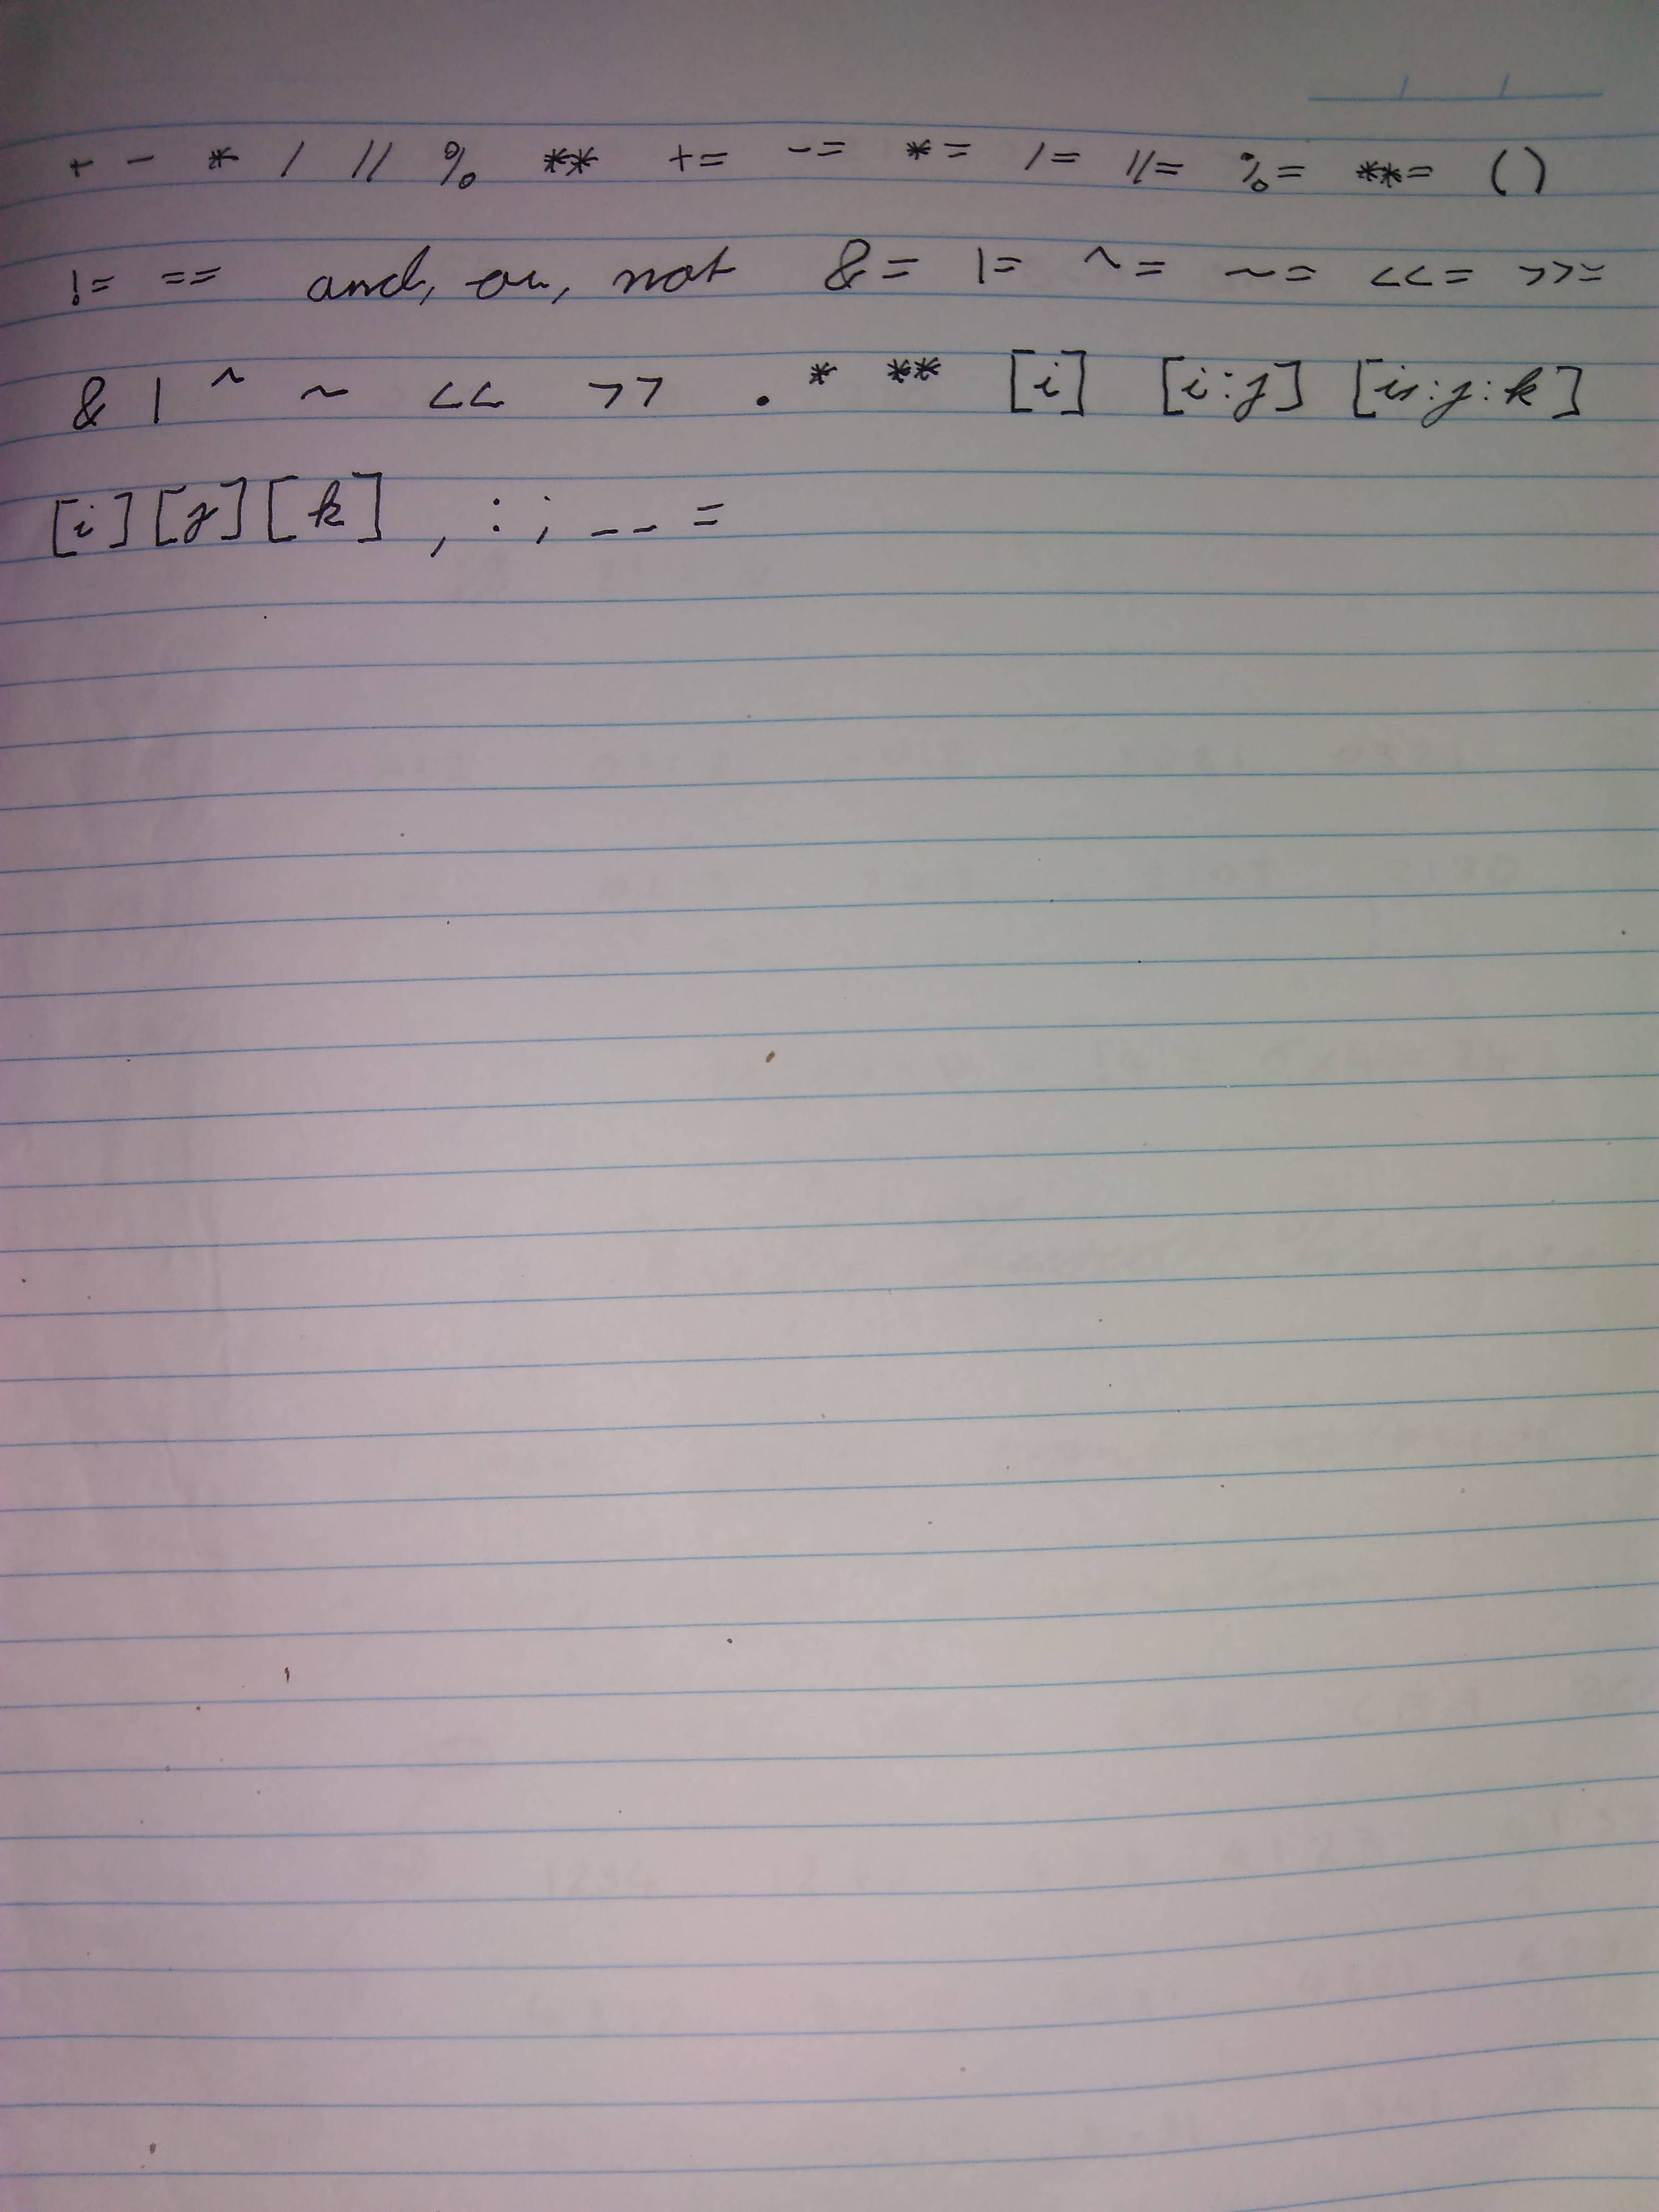 + - * / // % ** += -= *= /= //= %= **= ()
!= == and, or, not &= |= ^= ~= <<= >>=
& | ^ ~ << >> . * ** [i] [i:j] [i:j:k]
[i][j][k] , : ; _ _ =